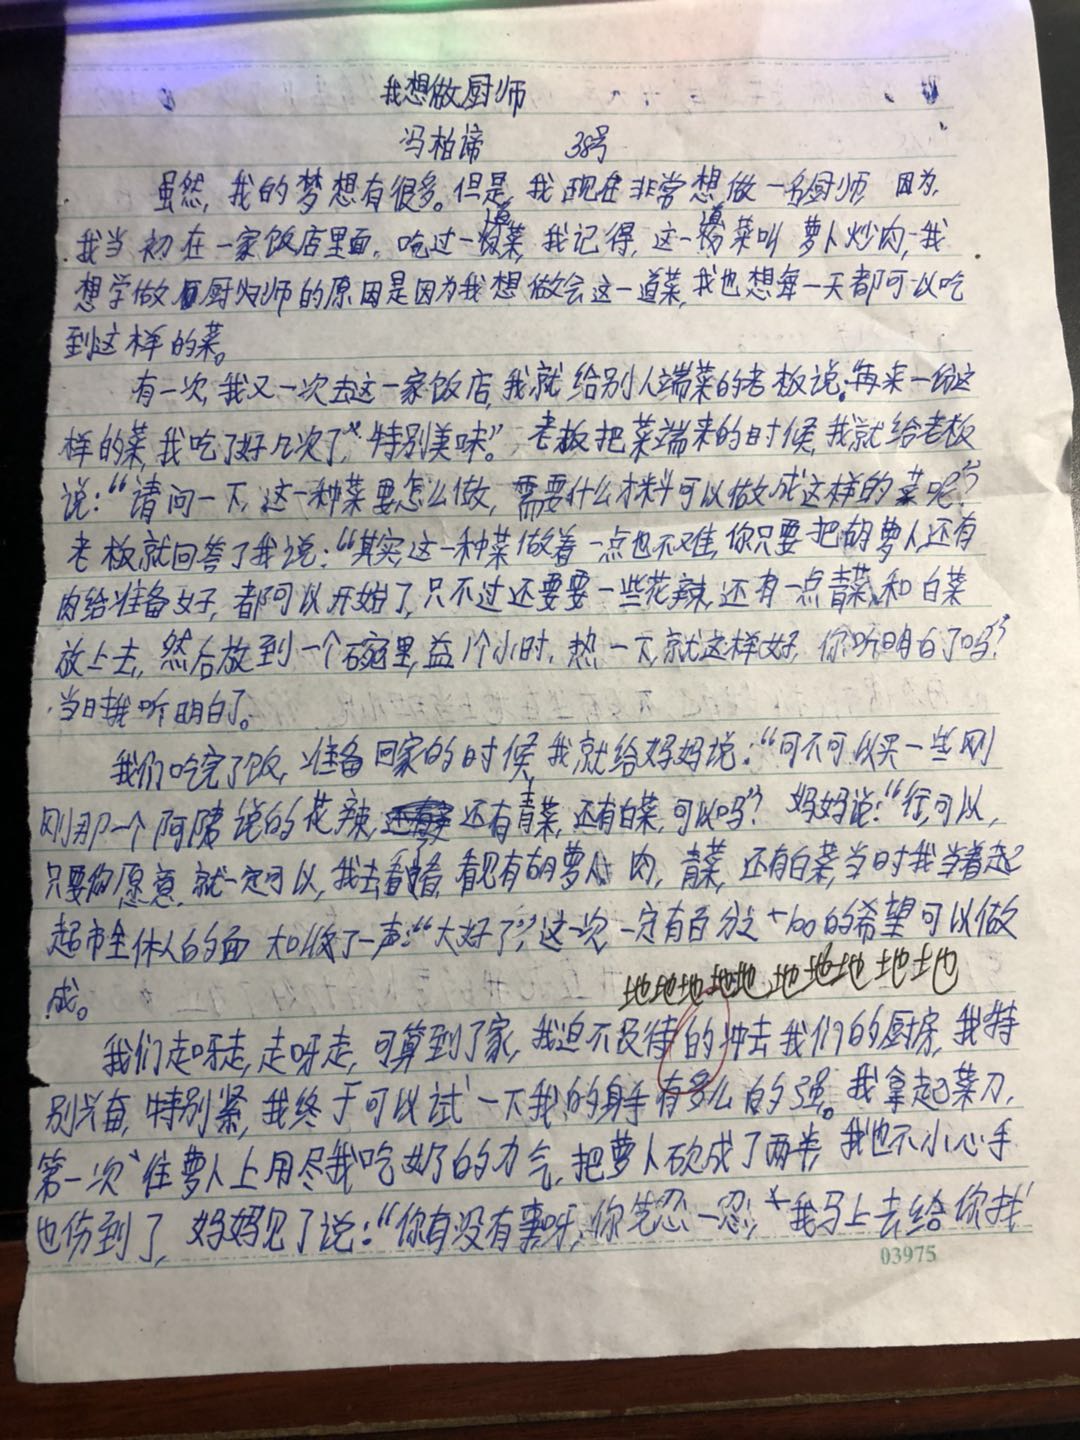 我想做厨师
冯柏谛 38号
虽然,我的梦想有很多。但是,我现在非常想做一名厨师 因为,
我当初在一家饭店里面,吃过一道菜,我记得,这一道菜叫 萝卜炒肉,我
想学做厨师的原因是因为我想做会这一道菜,我也想每一天都可以吃
到这样的菜。
有一次,我又一次去这一家饭店,我就给别人端菜的老板说:再来一份这
样的菜,我吃了好几次了,“特别美味”。老板把菜端来的时候,我就给老板
说:“请问一下,这一种菜要怎么做,需要什么材料可以做成这样的菜呢?”
老板就回答了我说:“其实,这一种菜做着一点也不难,你只要把胡萝卜,还有
肉给准备好,都可以开始了,只不过还要要一些花辣,还有一点青菜,和白菜
放上去,然后放到一个碗里,益1个小时,热一下,就这样好,你听明白了吗?”
当时我听明白了。
我们吃完了饭,准备回家的时候,我就给妈妈说:“可不可以买一些刚
刚那一个阿姨说的花辣,还有青菜,还有白菜,可以吗”?妈妈说:“行,可以,
只要你愿意,就一定可以,我去看看,看见有胡萝卜,肉,青菜,还有白菜,当时我当着起
超市全体人的面 大吼了一声:“大好了”,这一次,一定有百分之+100的希望可以做
成。
地地地地地地地地地地
我们走呀走,走呀走,可算到了家,我迫不及待的冲去我们的厨房,我特
别兴奋,特别紧,我终于可以试一下我的身手有多么的强。我拿起菜刀,
第一次往萝卜上用尽我吃奶的力气,把萝卜砍成了两半,我也不小心手
也伤到了,妈妈见了说:“你有没有事呀,你先忍一忍,”我马上去给你找
03975